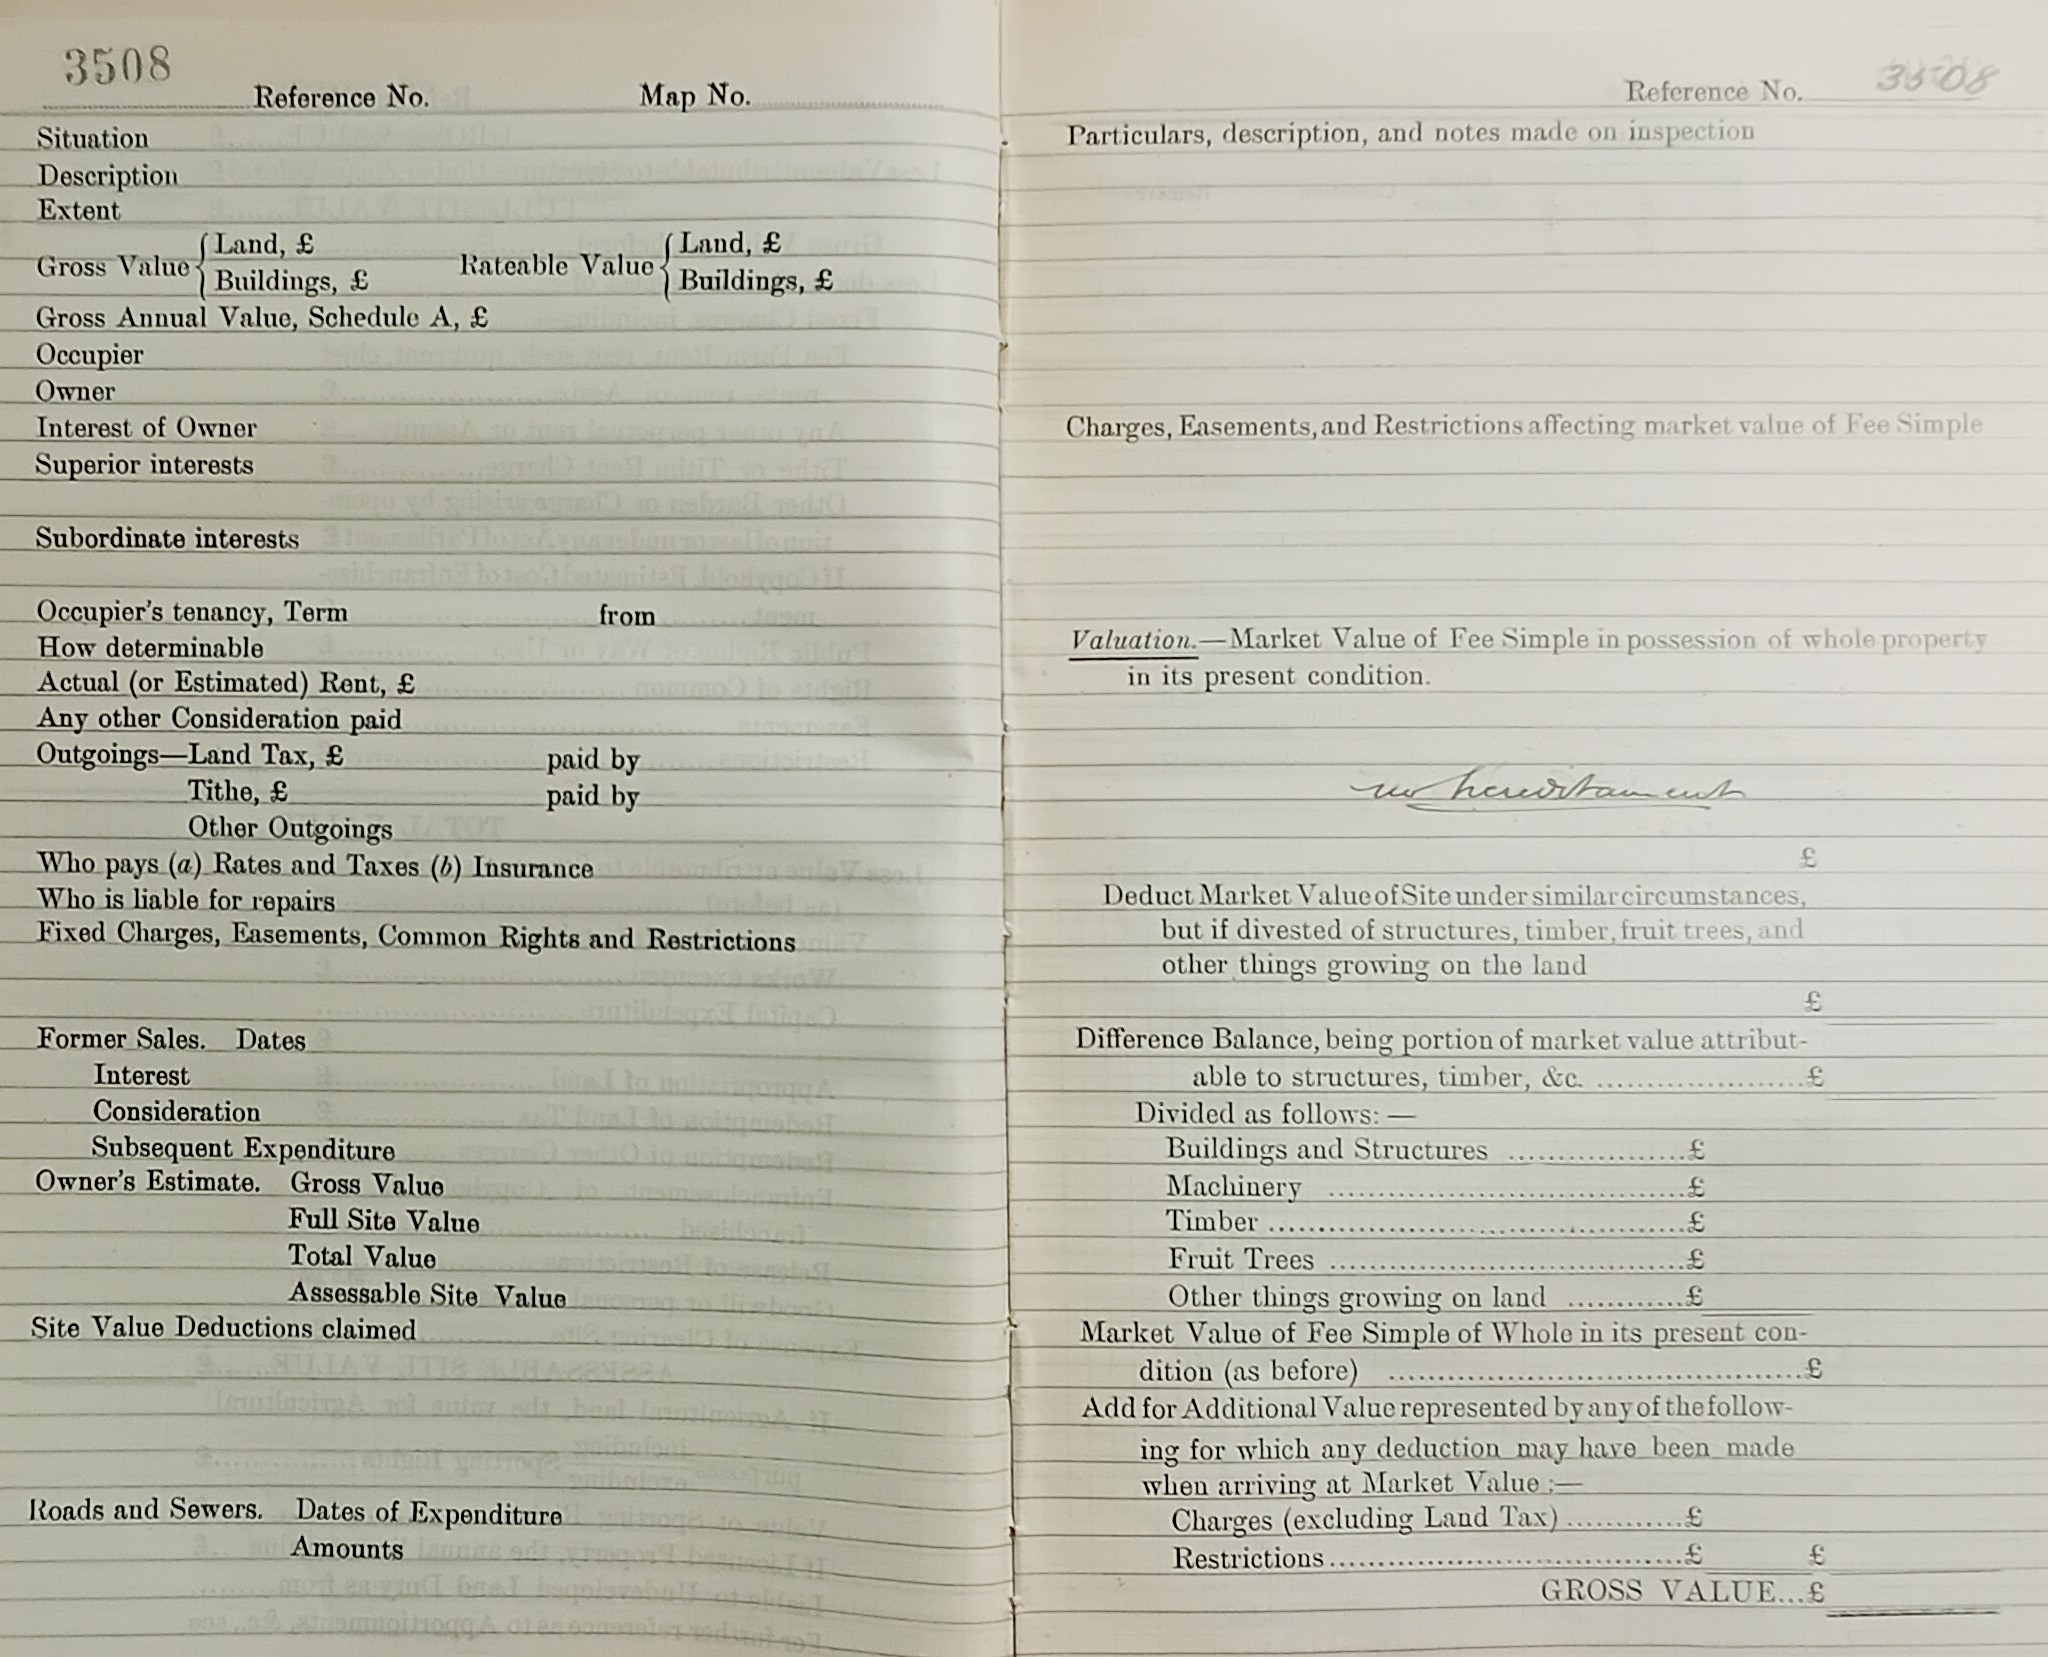 3508
Reference No. Map No.
Situation
Description
Extent
Gross Value { Land, £ Rateable Value { Land, £
Buildings, £ Buildings, £
Gross Annual Value, Schedule A, £
Occupier
Owner
Interest of Owner
Superior interests
Subordinate interests
Occupier's tenancy, Term from
How determinable
Actual (or Estimated) Rent, £
Any other Consideration paid
Outgoings—Land Tax, £ paid by
Tithe, £ paid by
Other Outgoings
Who pays (a) Rates and Taxes (b) Insurance
Who is liable for repairs
Fixed Charges, Easements, Common Rights and Restrictions
Former Sales. Dates
Interest
Consideration
Subsequent Expenditure
Owner's Estimate. Gross Value
Full Site Value
Total Value
Assessable Site Value
Site Value Deductions claimed
Roads and Sewers. Dates of Expenditure
Amounts
Reference No. 3508
Particulars, description, and notes made on inspection
Charges, Easements, and Restrictions affecting market value of Fee Simple
Valuation.—Market Value of Fee Simple in possession of whole property
in its present condition.
no hereditament
£
Deduct Market Value of Site under similar circumstances,
but if divested of structures, timber, fruit trees, and
other things growing on the land
£
Difference Balance, being portion of market value attribut-
able to structures, timber, &c. .....................£
Divided as follows:—
Buildings and Structures ..................£
Machinery ....................................£
Timber..........................................£
Fruit Trees ....................................£
Other things growing on land ............£
Market Value of Fee Simple of Whole in its present con-
dition (as before) ..........................................£
Add for Additional Value represented by any of the follow-
ing for which any deduction may have been made
when arriving at Market Value:—
Charges (excluding Land Tax)............£
Restrictions....................................£ £
GROSS VALUE...£